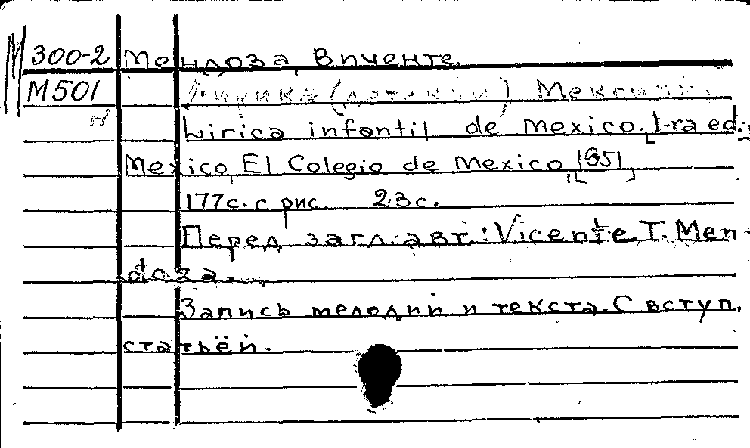 300-2 Мендоза, Висенте.
М501 Лирика (детский) Мексики.
Lirica infantil de Mexico. [1-ra ed.],
Mexico, El Colegio de Mexico [1951]
177с. с рис. 23с.
Перед загл. авт.: Vicente T. Men-
doza.
Запись мелодий и текста. С вступ.
статьёй.